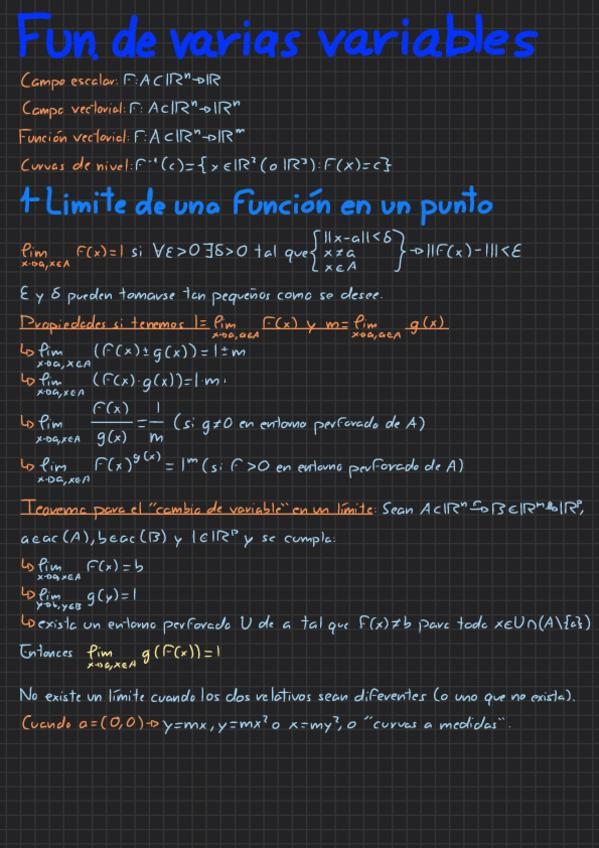 Fun. de varias variables
Campo escalar: F:A⊂ℝⁿ→ℝ
Campo vectorial: F:A⊂ℝⁿ→ℝⁿ
Función vectorial: F:A⊂ℝⁿ→ℝᵐ
Curvas de nivel: F⁻¹(c)={x∈ℝ²(o ℝ³):F(x)=c}
1 Limite de una Función en un punto
lim x→a,x∈A F(x)=l si ∀ε>0 ∃δ>0 tal que {||x-a||<δ x≠a x∈A} → ||F(x)-l||<ε
ε y δ pueden tomarse tan pequeños como se desee.
Propiedades si tenemos l=lim x→a,a∈A F(x) y m=lim x→a,a∈A g(x)
↳ lim x→a,x∈A (F(x)±g(x))=l±m
↳ lim x→a,x∈A (F(x)·g(x))=l·m.
↳ lim x→a,x∈A F(x)/g(x)=l/m (si g≠0 en entorno perforado de A)
↳ lim x→a,x∈A F(x)^g(x)=lᵐ (si F>0 en entorno perforado de A)
Teorema para el "cambio de variable" en un límite: Sean A⊂ℝⁿ F→ B∈ℝᵐ g→ ℝᵖ,
a∈ac(A), b∈ac(B) y l∈ℝᵖ y se cumpla:
↳ lim x→a,x∈A F(x)=b
↳ lim y→b,y∈B g(y)=l
↳ exista un entorno perforado U de a tal que F(x)≠b para todo x∈U∩(A\{a})
Entonces lim x→a,x∈A g(F(x))=l
No existe un límite cuando los dos relativos sean diferentes (o uno que no exista).
Cuando a=(0,0)→ y=mx, y=mx² o x=my², o "curvas a medidas".